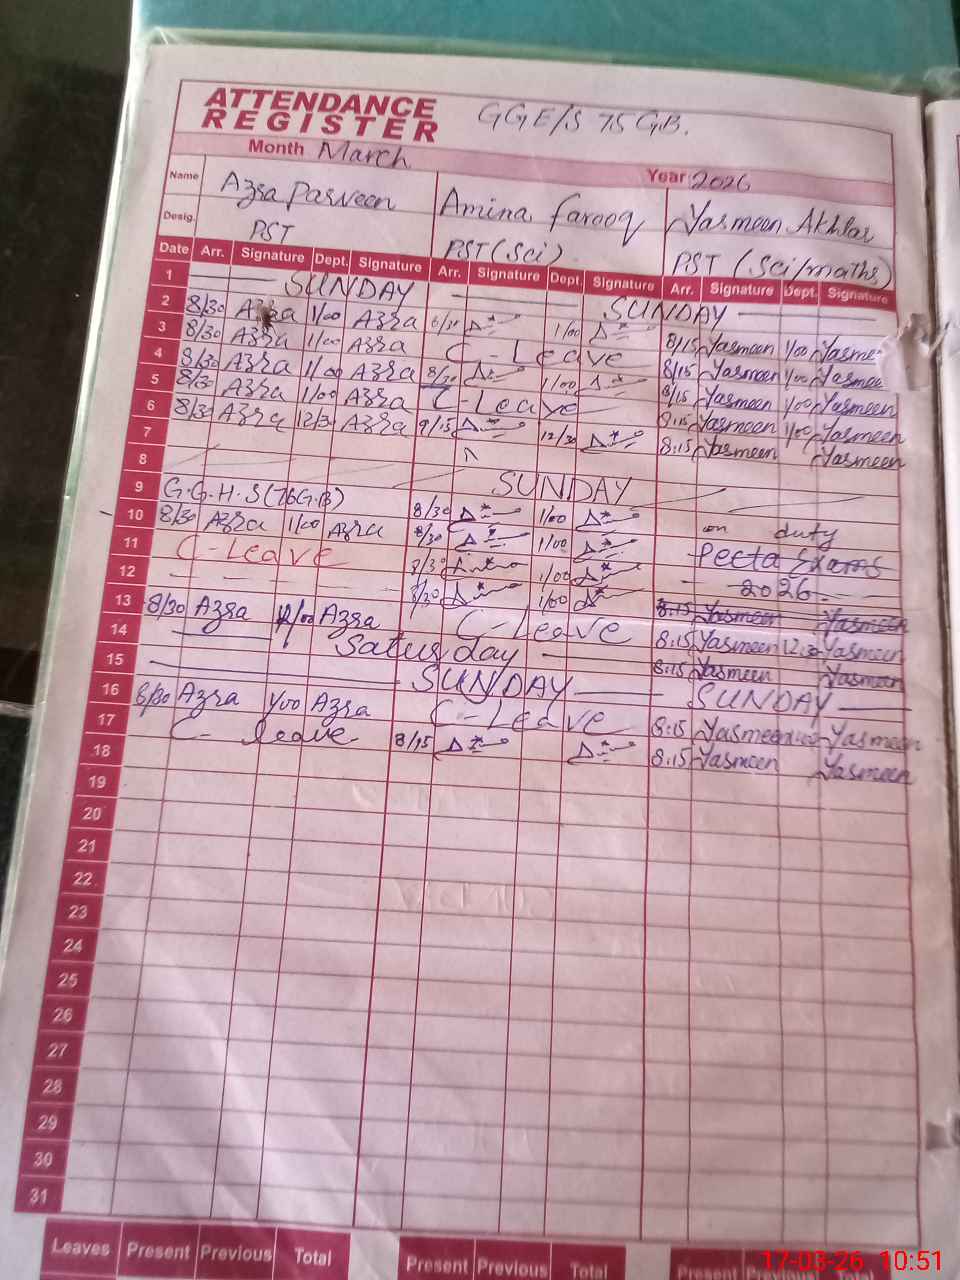 ATTENDANCE
REGISTER
GGE/S 75 G.B.
Month March
Year 2026
Name Azra Parveen Amina farooq Yasmeen Akhtar
Desig. PST PST (Sci). PST (Sci/maths)
Date Arr. Signature Dept. Signature Arr. Signature Dept. Signature Arr. Signature Dept. Signature
1 SUNDAY SUNDAY
2 8/30 Azra 1/00 Azra 1/00 8/15 Yasmeen 1/00 Yasmeen
3 8/30 Azra 1/00 Azra C-Leave 8/15 Yasmeen 1/00 Yasmeen
4 8/30 Azra 1/00 Azra 1/00 8/15 Yasmeen 1/00 Yasmeen
5 8/30 Azra 1/00 Azra C-Leave 8:15 Yasmeen 1/00 Yasmeen
6 8/30 Azra 12/30 Azra 9/15 12/30 8:15 Yasmeen Yasmeen
7
8 SUNDAY
9 G.G.H.S (76G.B) 8/30 1/00 on duty
10 8/30 Azra 1/00 Azra 8/30 1/00 Peeta Exams
11 C-Leave 8/30 1/00 2026
12 8/30 1/00 8:15 Yasmeen Yasmeen
13 8/30 Azra Azra C-Leave 8:15 Yasmeen 12:30 Yasmeen
14 Saturday 8:15 Yasmeen Yasmeen
15 SUNDAY SUNDAY
16 8/30 Azra 1/00 Azra C-Leave 8:15 Yasmeen Yasmeen
17 C-leave 8/15 8:15 Yasmeen Yasmeen
18
19
20
21
22
23
24
25
26
27
28
29
30
31
Leaves Present Previous Total Present Previous Total Present Previous Total
17-03-26 10:51